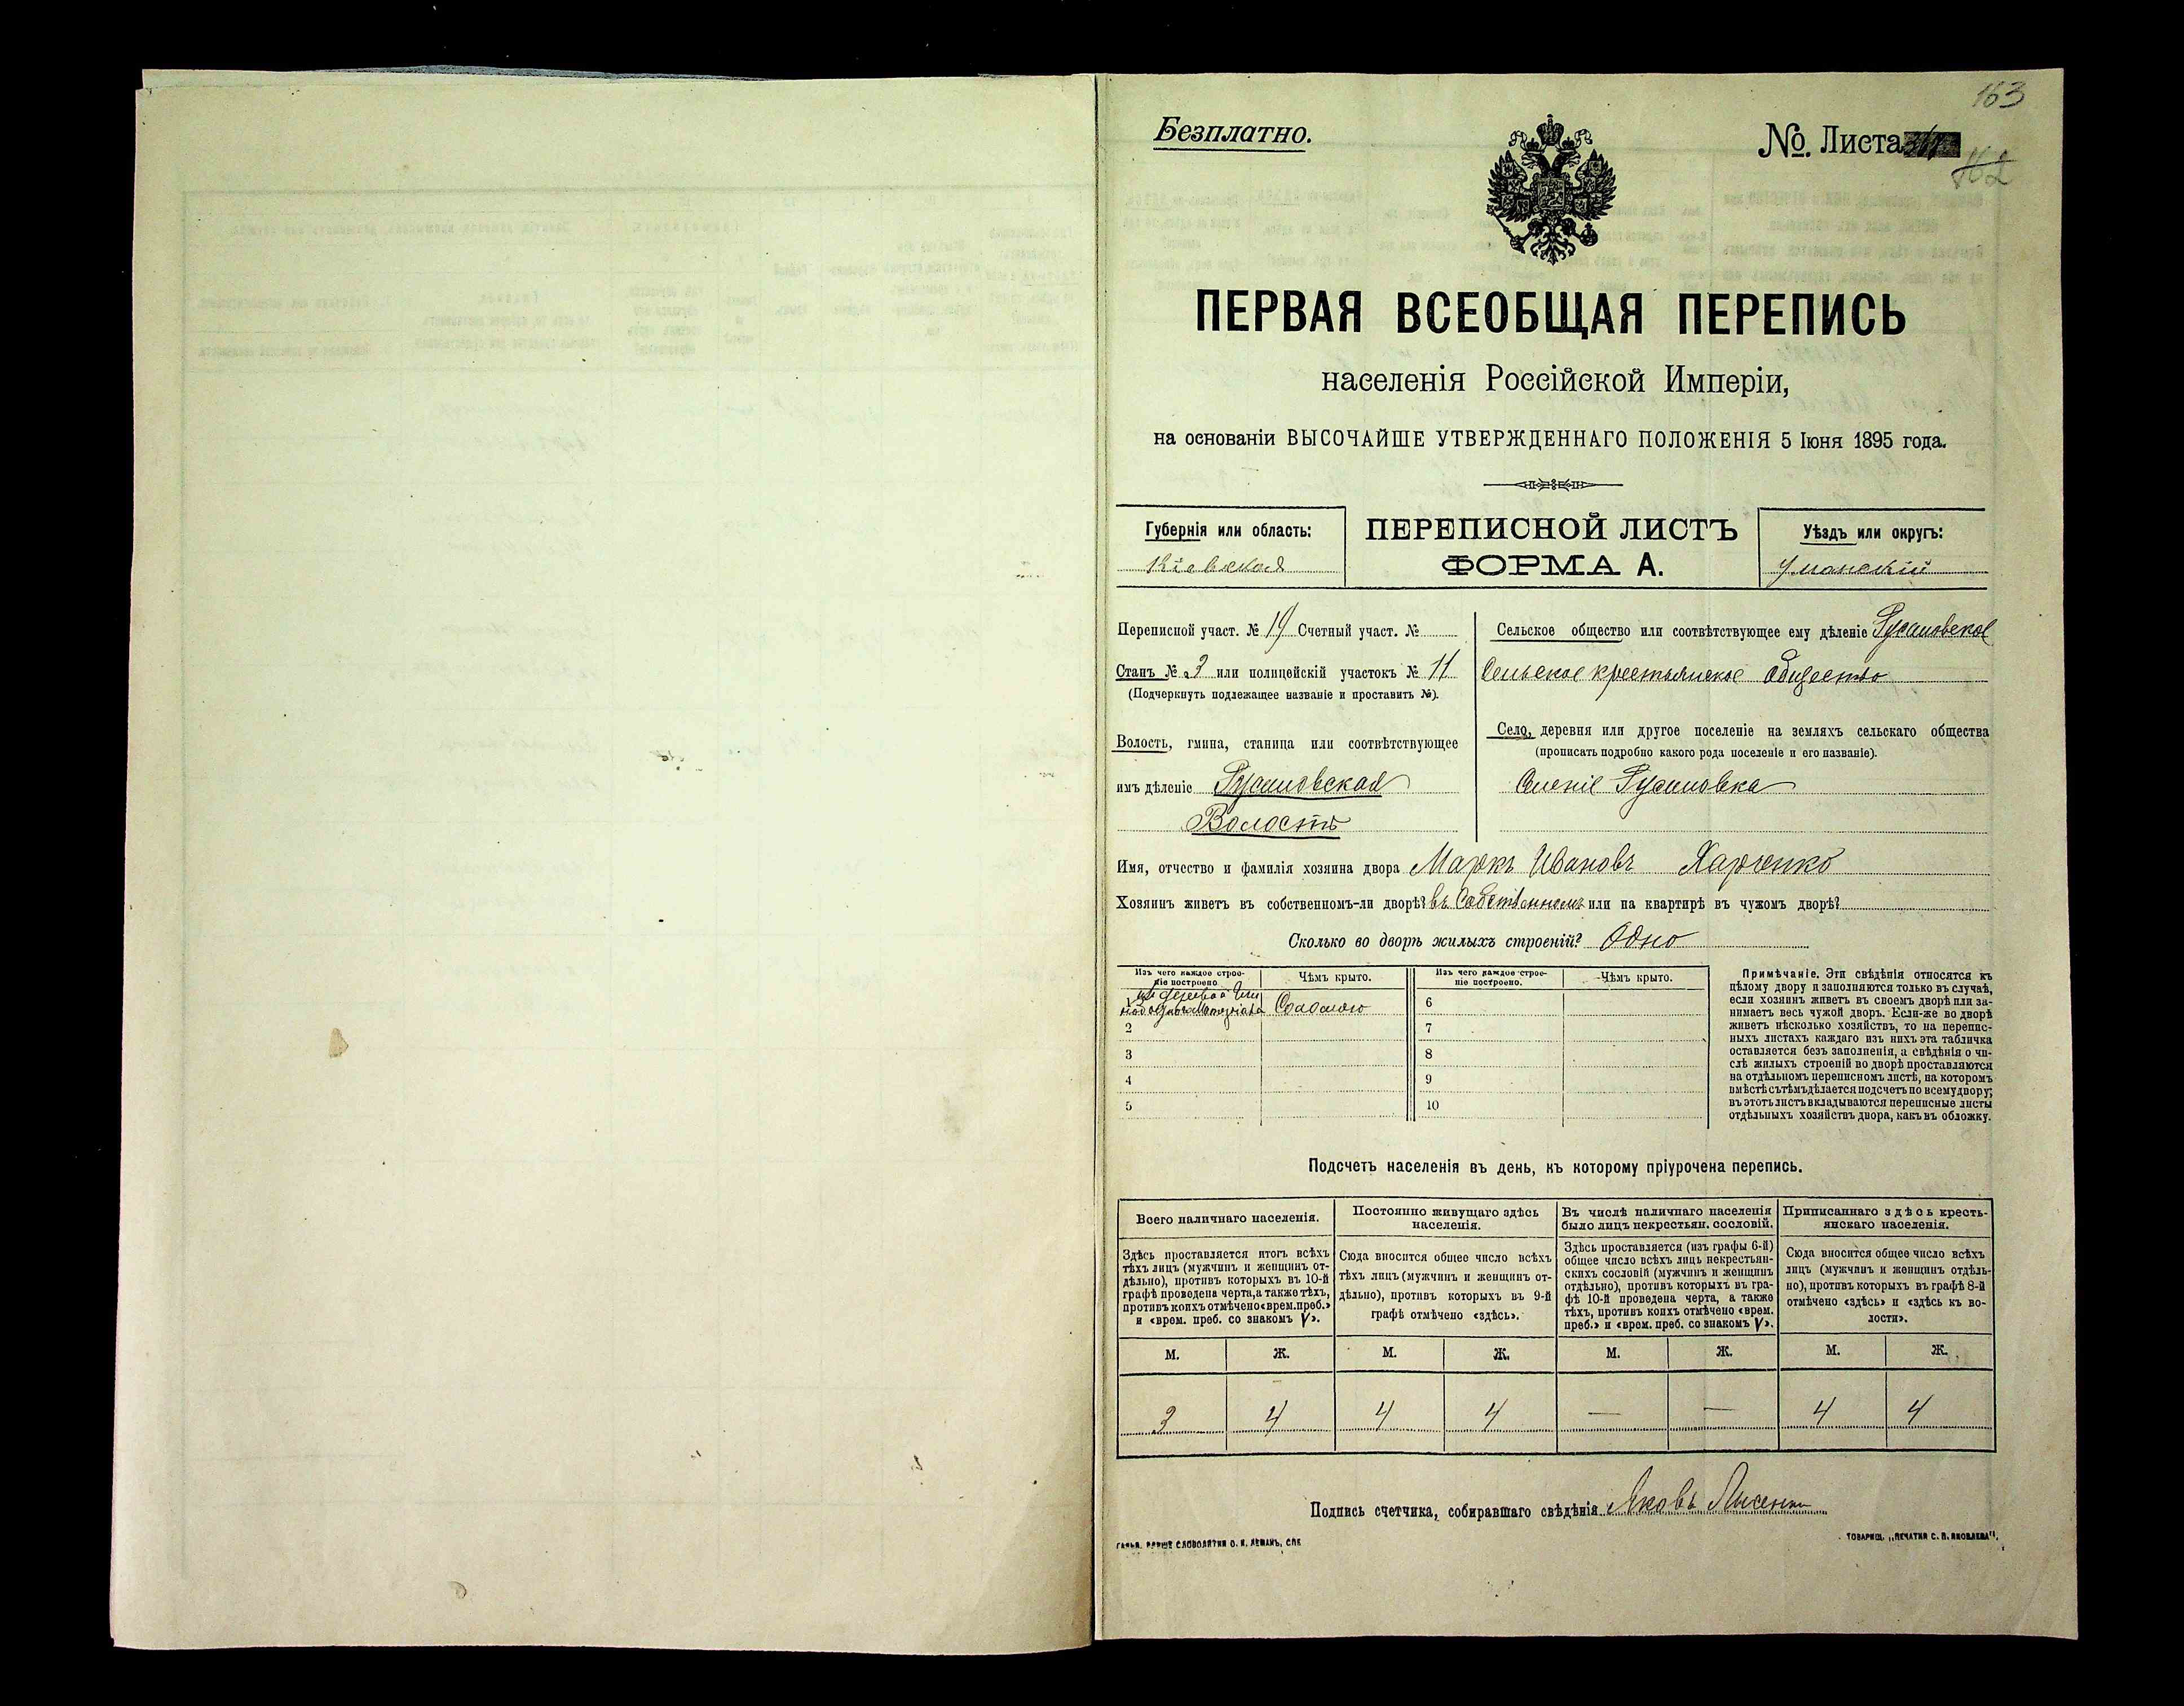 163
Безплатно.
№. Листа
162
ПЕРВАЯ ВСЕОБЩАЯ ПЕРЕПИСЬ
населенія Россійской Имперіи,
на основаніи ВЫСОЧАЙШЕ УТВЕРЖДЕННАГО ПОЛОЖЕНІЯ 5 Іюня 1895 года.
Губернія или область:
Кіевская
ПЕРЕПИСНОЙ ЛИСТЪ
ФОРМА А.
Уѣздъ или округъ:
Уманскій
Переписной участ. № 19 Счетный участ. №
Станъ № 3 или полицейскій участокъ № 11
(Подчеркнуть подлежащее названіе и проставить №).
Волость, гмина, станица или соотвѣтствующее
имъ дѣленіе
Волость
Сельское общество или соотвѣтствующее ему дѣленіе
Сельское крестьянское общество
Село, деревня или другое поселеніе на земляхъ сельскаго общества
(прописать подробно какого рода поселеніе и его названіе).
Имя, отчество и фамилія хозяина двора Маркъ Ивановъ Харченко
Хозяинъ живетъ въ собственномъ-ли дворѣ? въ собственномъ или на квартирѣ въ чужомъ дворѣ?
Сколько во дворѣ жилыхъ строеній? Одно
Изъ чего каждое строе-
ніе построено.
Чѣмъ крыто.
Изъ чего каждое строе-
ніе построено.
Чѣмъ крыто.
Соломою
6
2
7
3
8
4
9
5
10
Примѣчаніе. Эти свѣдѣнія относятся къ
цѣлому двору и заполняются только въ случаѣ,
если хозяинъ живетъ въ своемъ дворѣ или за-
нимаетъ весь чужой дворъ. Если-же во дворѣ
живетъ нѣсколько хозяйствъ, то на перепис-
ныхъ листахъ каждаго изъ нихъ эта табличка
оставляется безъ заполненія, а свѣдѣнія о чи-
слѣ жилыхъ строеній во дворѣ проставляются
на отдѣльномъ переписномъ листѣ, на которомъ
вмѣстѣ съ тѣмъ дѣлается подсчетъ по всему двору;
въ этотъ листъ вкладываются переписные листы
отдѣльныхъ хозяйствъ двора, какъ въ обложку.
Подсчетъ населенія въ день, къ которому пріурочена перепись.
Всего наличнаго населенія.
Здѣсь проставляется итогъ всѣхъ
тѣхъ лицъ (мужчинъ и женщинъ от-
дѣльно), противъ которыхъ въ 10-й
графѣ проведена черта, а также тѣхъ,
противъ коихъ отмѣчено «врем. преб.»
и «врем. преб. со знакомъ V».
Постоянно живущаго здѣсь
населенія.
Сюда вносится общее число всѣхъ
тѣхъ лицъ (мужчинъ и женщинъ от-
дѣльно), противъ которыхъ въ 9-й
графѣ отмѣчено «здѣсь».
Въ числѣ наличнаго населенія
было лицъ некрестьян. сословій.
Здѣсь проставляется (изъ графы 6-й)
общее число всѣхъ лицъ некрестьян-
скихъ сословій (мужчинъ и женщинъ
отдѣльно), противъ которыхъ въ гра-
фѣ 10-й проведена черта, а также
тѣхъ, противъ коихъ отмѣчено «врем.
преб.» и «врем. преб. со знакомъ V».
Приписаннаго здѣсь кресть-
янскаго населенія.
Сюда вносится общее число всѣхъ
лицъ (мужчинъ и женщинъ отдѣль-
но), противъ которыхъ въ графѣ 8-й
отмѣчено «здѣсь» и «здѣсь къ во-
лости».
М. Ж. М. Ж. М. Ж. М. Ж.
3 4 4 4 — — 4 4
Подпись счетчика, собиравшаго свѣдѣнія Яковъ
ТОВАРИЩ. „ПЕЧАТНЯ С. П. ЯКОВЛЕВА".